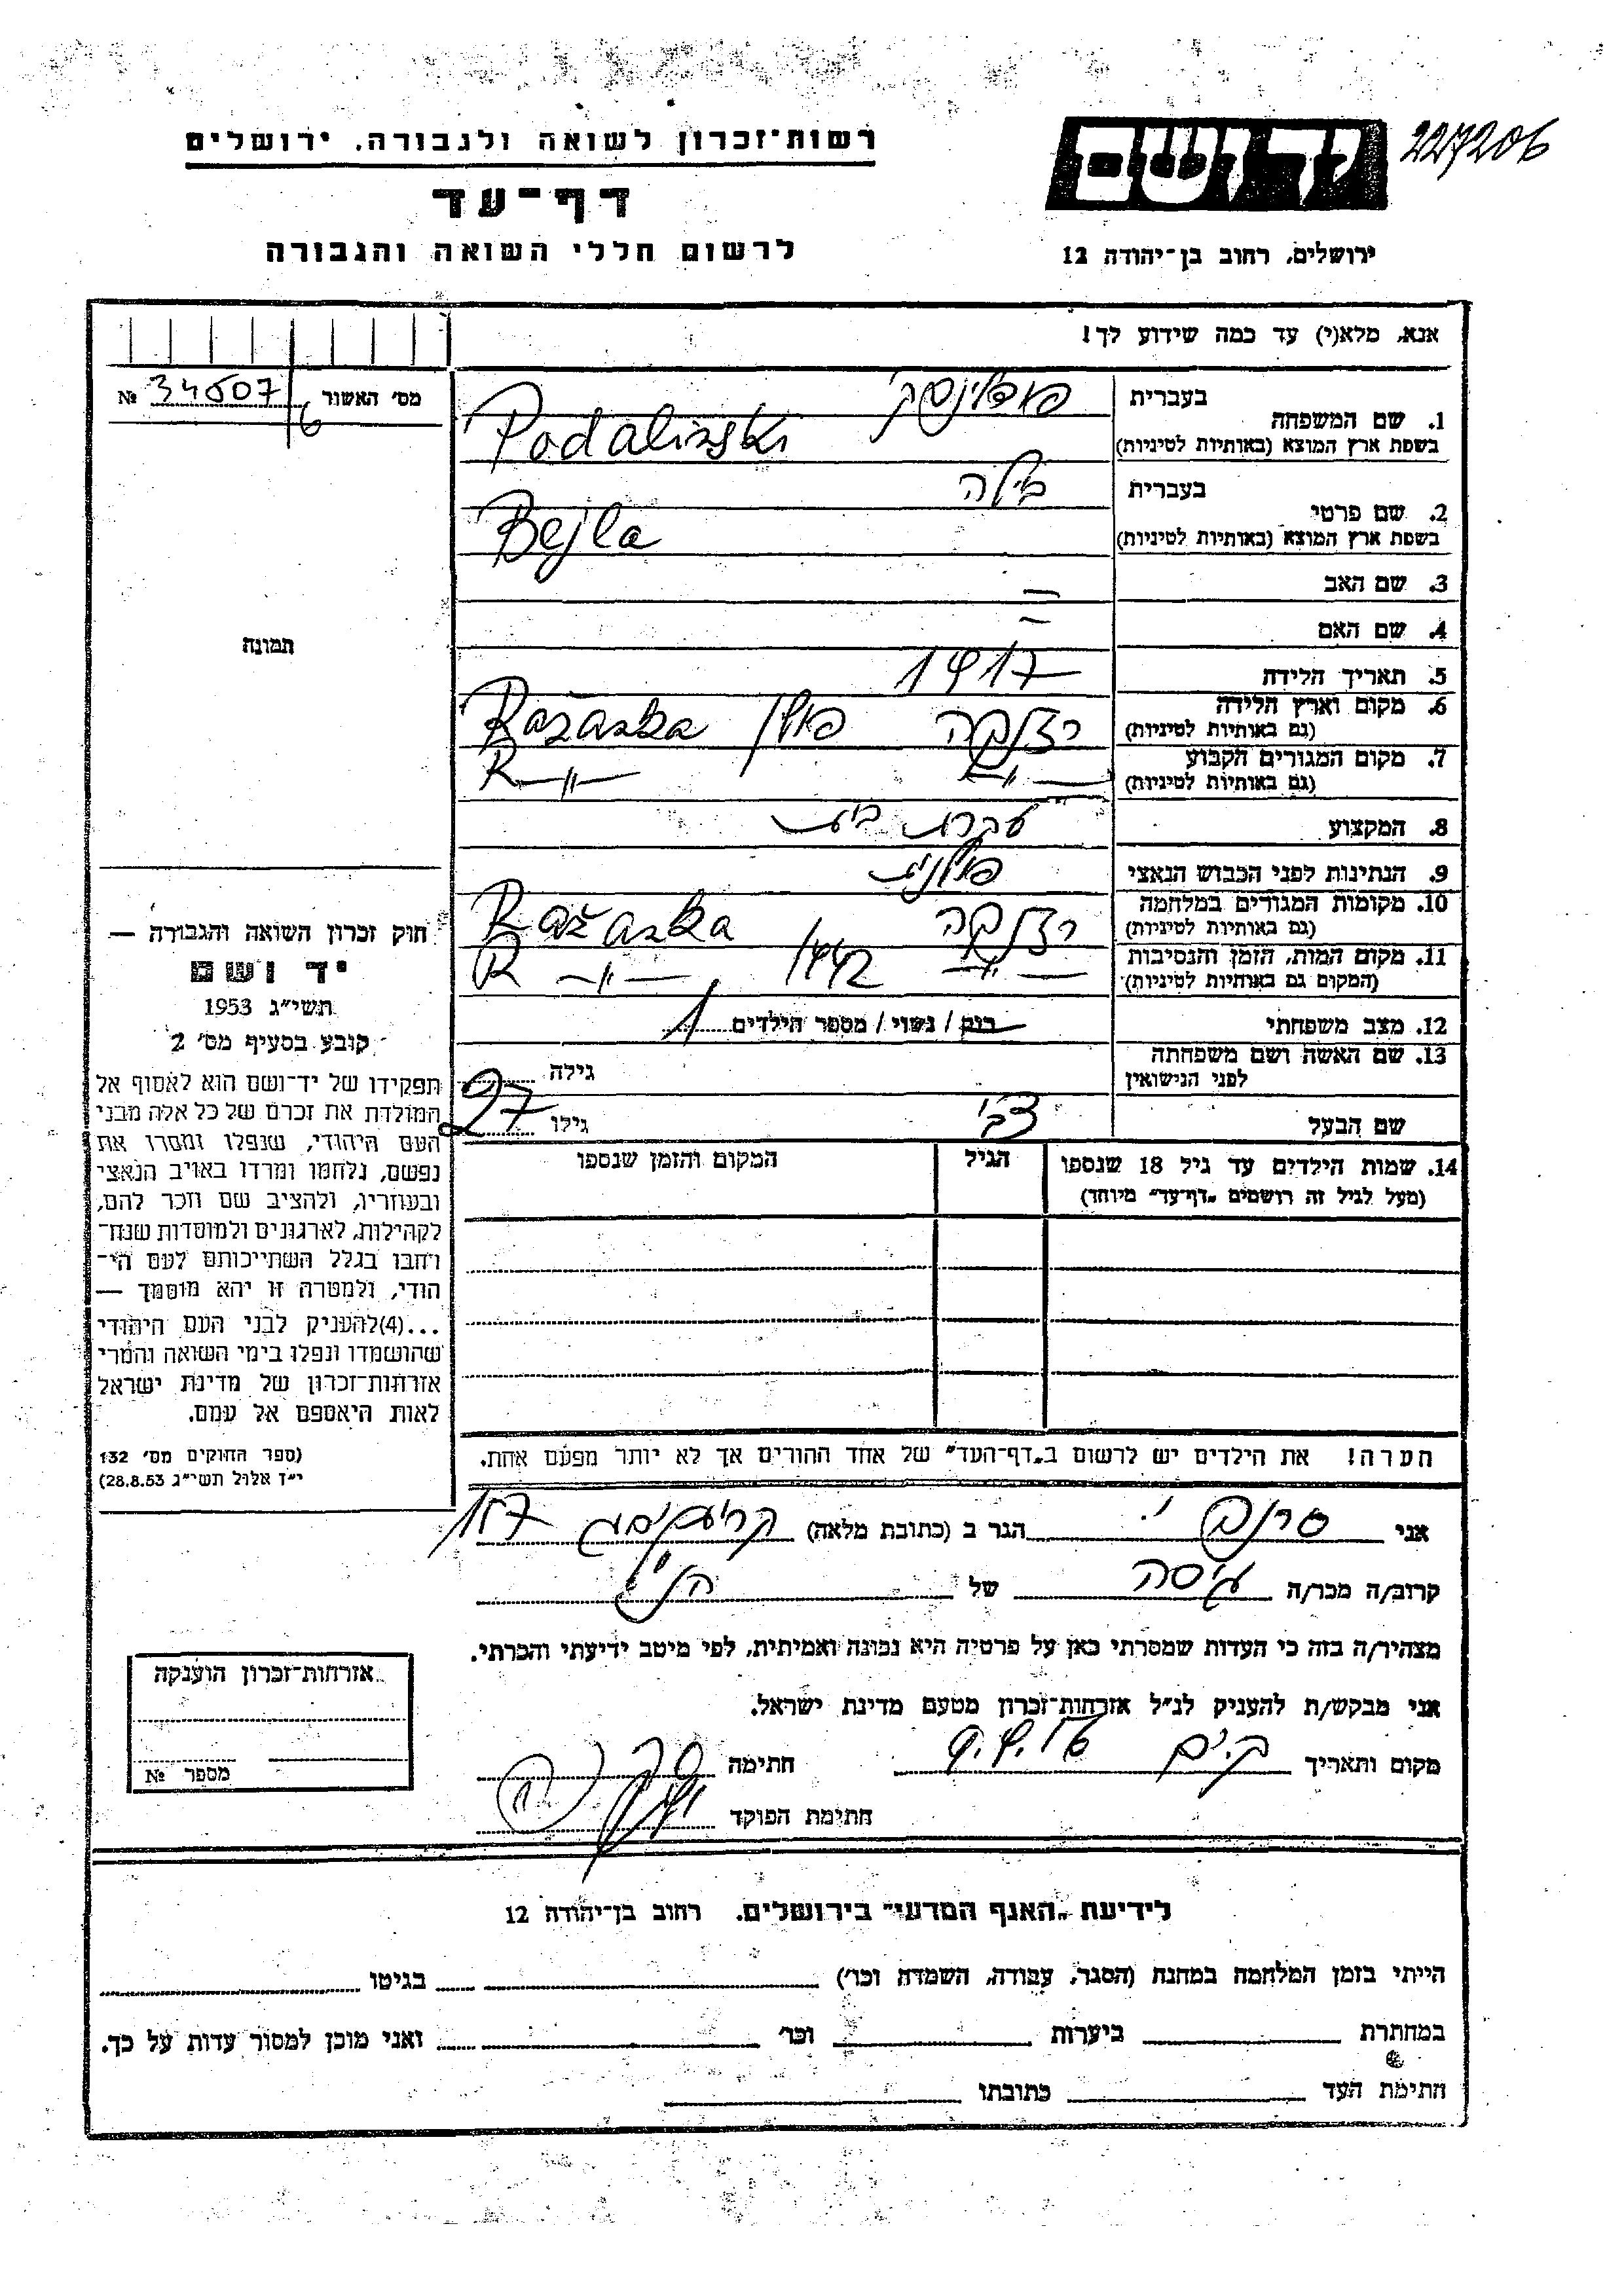 רשות־זכרון לשואה ולגבורה. ירושלים
227206
יד ושם
דף־עד
לרשום חללי השואה והגבורה
ירושלים, רחוב בן־יהודה 12
אנא, מלא(י) עד כמה שידוע לך!
מס׳ האשור № 34507/6
תמונה
1. שם המשפחה
בעברית
בשפת ארץ המוצא (באותיות לטיניות) Podalinski
2. שם פרטי
בעברית בילה
בשפת ארץ המוצא (באותיות לטיניות) Bejla
3. שם האב —
4. שם האם —
5. תאריך הלידה 1917
6. מקום וארץ הלידה רז'נקה פולין Ražanka
(גם באותיות לטיניות)
7. מקום המגורים הקבוע —״— R —״—
(גם באותיות לטיניות)
8. המקצוע עקרת בית
9. הנתינות לפני הכבוש הנאצי פולנית
10. מקומות המגורים במלחמה רז'נקה Ražanka
(גם באותיות לטיניות)
11. מקום המות, הזמן והנסיבות —״— 1942 R —״—
(המקום גם באותיות לטיניות)
12. מצב משפחתי רווק / נשוי / מספר הילדים 1
13. שם האשה ושם משפחתה
לפני הנישואין
גילה
שם הבעל צבי גילו 27
14. שמות הילדים עד גיל 18 שנספו
(מעל לגיל זה רושמים „דף־עד״ מיוחד)
הגיל
המקום והזמן שנספו
הערה! את הילדים יש לרשום ב„דף־העד״ של אחד ההורים אך לא יותר מפעם אחת.
חוק זכרון השואה והגבורה —
יד ושם
תשי״ג 1953
קובע בסעיף מס׳ 2
תפקידו של יד־ושם הוא לאסוף אל
המולדת את זכרם של כל אלה מבני
העם היהודי, שנפלו ומסרו את
נפשם, נלחמו ומרדו באויב הנאצי
ובעוזריו, ולהציב שם וזכר להם,
לקהילות, לארגונים ולמוסדות שנח־
רבו בגלל השתייכותם לעם הי־
הודי, ולמטרה זו יהא מוסמך —
...(4)להעניק לבני העם היהודי
שהושמדו ונפלו בימי השואה והמרי
אזרחות־זכרון של מדינת ישראל
לאות היאספם אל עמם.
(ספר החוקים מס׳ 132
י״ד אלול תשי״ג 28.8.53)
אני הגר ב (כתובת מלאה) 157
קרוב/ה מכר/ה גיסה של הנ״ל
מצהיר/ה בזה כי העדות שמסרתי כאן על פרטיה היא נכונה ואמיתית, לפי מיטב ידיעתי והכרתי.
אני מבקש/ת להעניק לנ״ל אזרחות־זכרון מטעם מדינת ישראל.
מקום ותאריך ק. ים חתימה
חתימת הפוקד
„אזרחות־זכרון הוענקה
מספר №
לידיעת „האגף המדעי״ בירושלים. רחוב בן־יהודה 12
הייתי בזמן המלחמה במחנה (הסגר, עבודה, השמדה וכו׳) בגיטו
במחתרת ביערות וכו׳ ואני מוכן למסור עדות על כך.
חתימת העד כתובתו